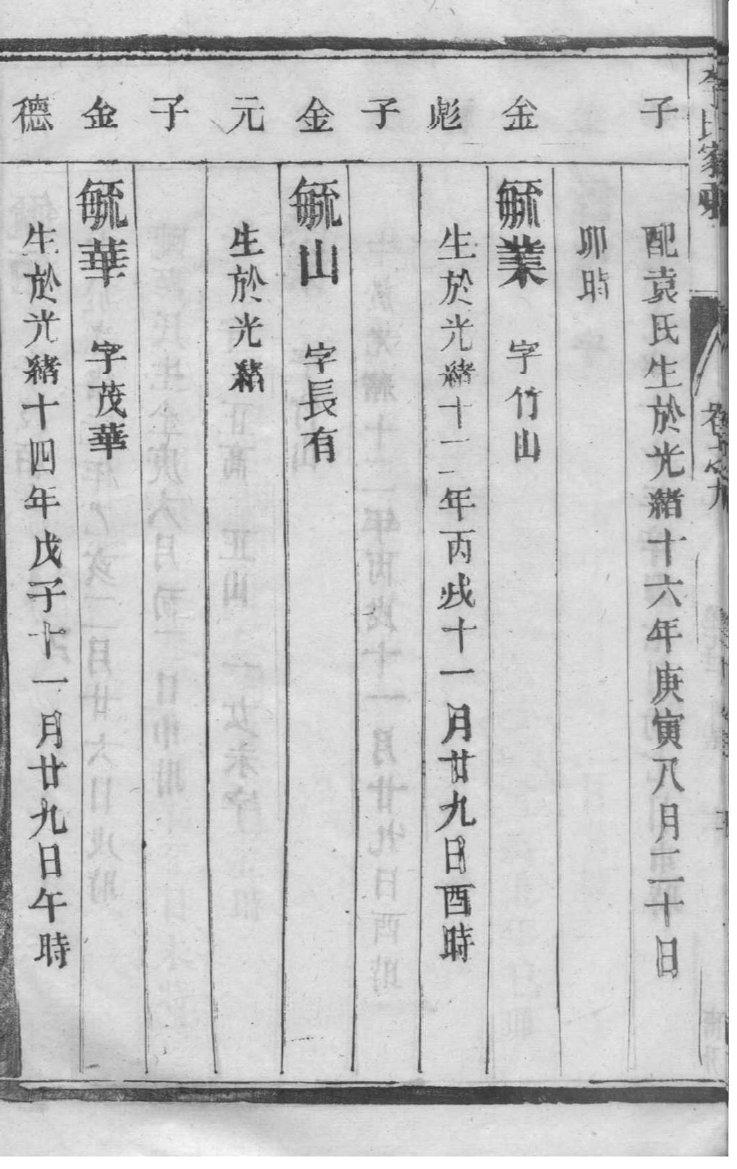 子 配袁氏生於光緒十六年庚寅八月二十日
卯時
金 毓業 字竹山
彪 生於光緒十二年丙戌十一月廿九日酉時
子
金 毓山 字長有
元 生於光緒
子
金 毓華 字茂華
德 生於光緒十四年戊子十一月廿九日午時